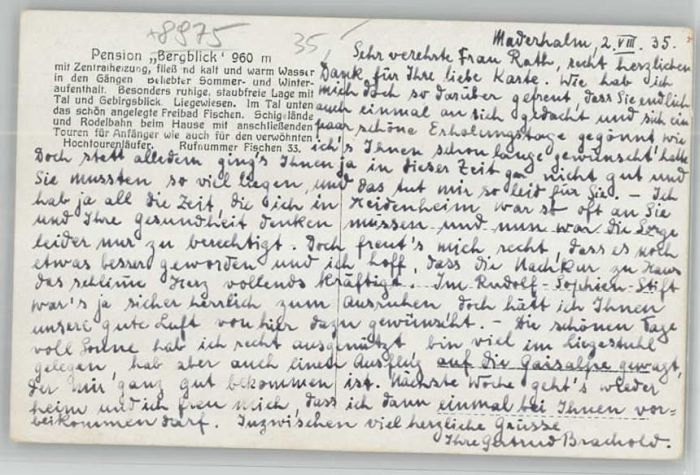 +8975
35
Pension „Bergblick' 960 m
mit Zentralheizung, fließ nd kalt und warm Wasser
in den Gängen Beliebter Sommer- und Winter-
aufenthalt. Besonders ruhige, staubfreie Lage mit
Tal und Gebirgsblick. Liegewiesen. Im Tal unten
das schön angelegte Freibad Fischen. Schigelände
und Rodelbahn beim Hause mit anschließenden
Touren für Anfänger wie auch für den verwöhnten
Hochtourenläufer. Rufnummer Fischen 33.
Maderhalm, 2. VIII. 35.
Sehr verehrte Frau Rath, recht herzlichen
Dank für Ihre liebe Karte. Wie hab ich
mich doch so darüber gefreut, dass Sie endlich
auch einmal an sich gedacht und sich ein
paar schöne Erholungstage gegönnt wie
ich's Ihnen schon lange gewünscht hatte
Doch statt alledem ging's Ihnen ja in dieser Zeit gar nicht gut und
Sie mussten so viel liegen, und das tut mir so leid für Sie. – Ich
hab ja all die Zeit, die ich in Heidenheim war so oft an Sie
und Ihre Gesundheit denken müssen und nun war die Sorge
leider nur zu berechtigt. Doch freut's mich recht, dass es noch
etwas besser geworden und ich hoff, dass die Nachkur zu Haus
das schlimme Herz vollends kräftigt. Im Rudolf-Sophien-Stift
war's ja sicher herrlich zum Ausruhen doch hätt ich Ihnen
unsere gute Luft von hier dazu gewünscht. – Die schönen Tage
voll Sonne hab ich recht ausgenützt bin viel im Liegestuhl
gelegen, hab aber auch einen Ausflug auf die Gaisalpe gewagt,
der mir ganz gut bekommen ist. Nächste Woche geht's wieder
heim und ich freu mich, dass ich dann einmal bei Ihnen vor-
beikommen darf. Inzwischen viel herzliche Grüsse
Ihre Gertrud Brachold.